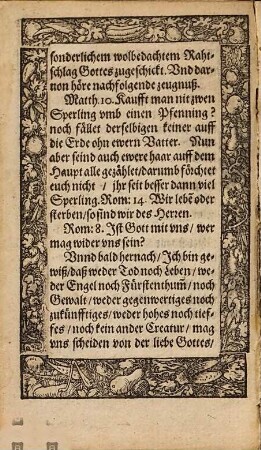 sonderlichem wolbedachtem Raht-
schlag Gottes zugeschickt. Vnd dar-
uon höre nachfolgende zeugnuß.
Matth. 10. Kaufft man nit zwen
Sperling vmb einen Pfenning?
noch fället derselbigen keiner auff
die Erde ohn ewern Vatter. Nun
aber seind auch ewere haar auff dem
Haupt alle gezählet/ darumb förchtet
euch nicht / jhr seit besser dann viel
Sperling. Rom: 14. Wir lebē oder
sterben/ so sind wir des Herren.
Rom: 8. Ist Gott mit vns / wer
mag wider vns sein?
Vnnd bald hernach/ Ich bin ge-
wiß/ daß weder Tod noch Leben/ we-
der Engel noch Fürstenthum̄/ noch
Gewalt/ weder gegenwertiges noch
zukünfftiges/ weder hohes noch tief-
fes/ noch kein ander Creatur/ mag
vns scheiden von der liebe Gottes/